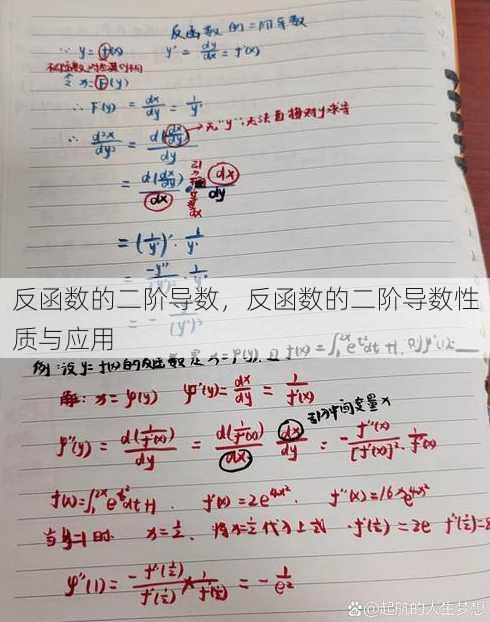 反函数的二阶导数
∵ y=f(x) y'=dy/dx=f'(x)
令 x=F(y)
∴ F'(y)=dx/dy=1/y'
∴ d²x/dy²=d(dx/dy)/dy →无"y",无法直接对y求导
=d(dx/dy)/dx·dx/dy
=(1/y')'·1/y'
=-y''/(y')²·1/y'
反函数的二阶导数,反函数的二阶导数性
质与应用
例:设y=f(x)的反函数是x=φ(y),且f(x)=∫₁²ˣe^t²dt+1,则φ''(1)=__
解:x=φ(y) φ'(y)=dx/dy=1/f'(x)
φ''(y)=d(1/f'(x))/dy=d(1/f'(x))/dx·dx/dy=-f''(x)/[f'(x)]²·1/f'(x) 引入中间变量x
f(x)=∫₁²ˣe^t²dt+1. f'(x)=2e^4x². f''(x)=16xe^4x²
当y=1时 x=1/2. 将x=1/2代入上式 f'(1/2)=2e f''(1/2)=8
φ''(1)=-f''(1/2)/f'(1/2)×1/f'(1/2)=-1/e²
@起航的人生梦想